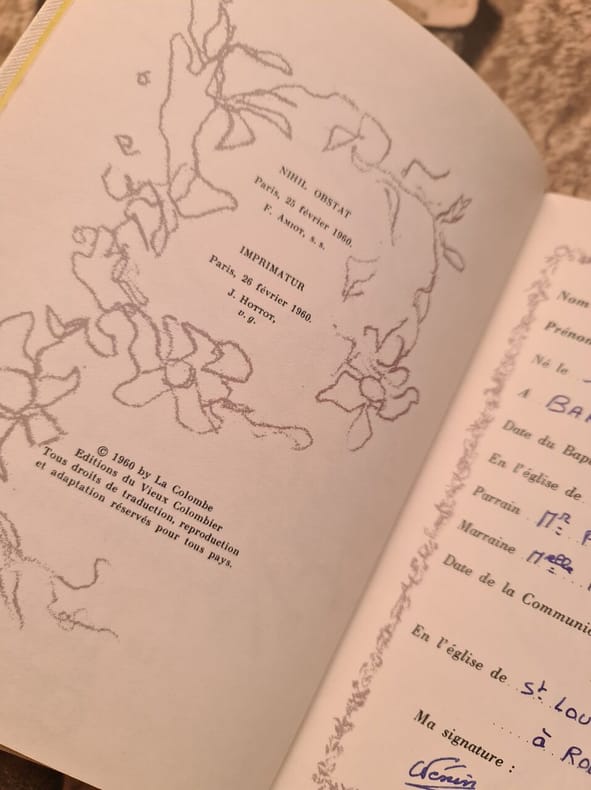 NIHIL OBSTAT
Paris, 25 février 1960.
F. AMIOT, s. s.
IMPRIMATUR
Paris, 26 février 1960.
J. HOTTOT,
v. g.
© 1960 by La Colombe
Editions du Vieux Colombier
Tous droits de traduction, reproduction
et adaptation réservés pour tous pays.
Nom
Prénom
Né le
A BAR
Date du Bap
En l'église de
Parrain Mr
Marraine Melle
Date de la Communi
En l'église de St LOU
à RO
Ma signature :